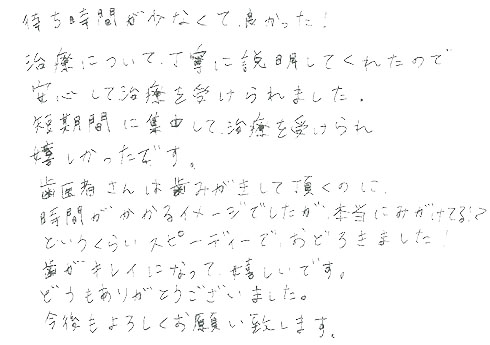 待ち時間が少なくて、良かった！
治療について、丁寧に説明してくれたので
安心して治療を受けられました。
短期間に集中して、治療を受けられ
嬉しかったです。
歯医者さんは歯みがきして頂くのに、
時間がかかるイメージでしたが、本当にみがけてる!?
というくらいスピーディーで、おどろきました！
歯がキレイになって、嬉しいです。
どうもありがとうございました。
今後もよろしくお願い致します。